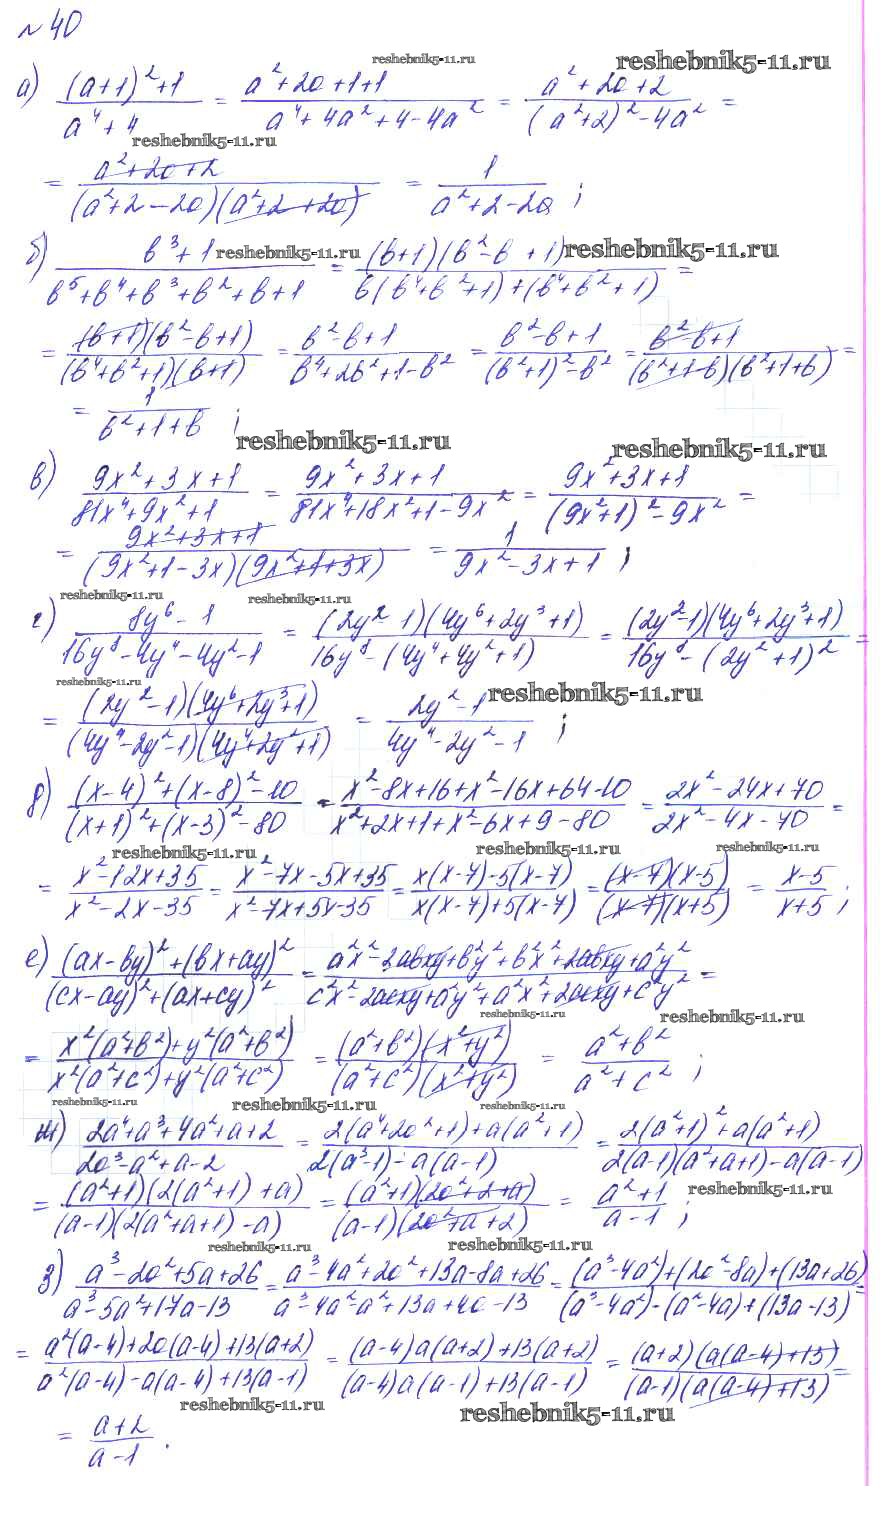 № 40
reshebnik5-11.ru reshebnik5-11.ru
а) ((a+1)²+1)/(a⁴+4) = (a²+2a+1+1)/(a⁴+4a²+4-4a²) = (a²+2a+2)/((a²+2)²-4a²) =
reshebnik5-11.ru
= (a²+2a+2)/((a²+2-2a)(a²+2+2a)) = 1/(a²+2-2a) ;
б) (b³+1)/(b⁵+b⁴+b³+b²+b+1) = ((b+1)(b²-b+1))/(b(b⁴+b²+1)+(b⁴+b²+1)) =
reshebnik5-11.ru reshebnik5-11.ru
= ((b+1)(b²-b+1))/((b⁴+b²+1)(b+1)) = (b²-b+1)/(b⁴+2b²+1-b²) = (b²-b+1)/((b²+1)²-b²) = (b²-b+1)/((b²+1-b)(b²+1+b)) =
= 1/(b²+1+b) ;
reshebnik5-11.ru reshebnik5-11.ru
в) (9x²+3x+1)/(81x⁴+9x²+1) = (9x²+3x+1)/(81x⁴+18x²+1-9x²) = (9x²+3x+1)/((9x²+1)²-9x²) =
= (9x²+3x+1)/((9x²+1-3x)(9x²+1+3x)) = 1/(9x²-3x+1) ;
reshebnik5-11.ru reshebnik5-11.ru
г) (8y⁶-1)/(16y⁸-4y⁴-4y²-1) = ((2y² 1)(4y⁶+2y³+1))/(16y⁸-(4y⁴+4y²+1)) = ((2y²-1)(4y⁶+2y³+1))/(16y⁸-(2y²+1)²) =
reshebnik5-11.ru reshebnik5-11.ru
= ((2y²-1)(4y⁶+2y³+1))/((4y⁴-2y²-1)(4y⁴+2y²+1)) = (2y²-1)/(4y⁴-2y²-1) ;
д) ((x-4)²+(x-8)²-10)/((x+1)²+(x-3)²-80) = (x²-8x+16+x²-16x+64-10)/(x²+2x+1+x²-6x+9-80) = (2x²-24x+70)/(2x²-4x-70) =
reshebnik5-11.ru reshebnik5-11.ru reshebnik5-11.ru
= (x²-12x+35)/(x²-2x-35) = (x²-7x-5x+35)/(x²-7x+5x-35) = (x(x-7)-5(x-7))/(x(x-7)+5(x-7)) = ((x-7)(x-5))/((x-7)(x+5)) = (x-5)/(x+5) ;
е) ((ax-by)²+(bx+ay)²)/((cx-ay)²+(ax+cy)²) = (a²x²-2abxy+b²y²+b²x²+2abxy+a²y²)/(c²x²-2acxy+a²y²+a²x²+2acxy+c²y²) =
reshebnik5-11.ru reshebnik5-11.ru
= (x²(a²+b²)+y²(a²+b²))/(x²(a²+c²)+y²(a²+c²)) = ((a²+b²)(x²+y²))/((a²+c²)(x²+y²)) = (a²+b²)/(a²+c²) ;
reshebnik5-11.ru reshebnik5-11.ru reshebnik5-11.ru
ж) (2a⁴+a³+4a²+a+2)/(2a³-a²+a-2) = (2(a⁴+2a²+1)+a(a²+1))/(2(a³-1)-a(a-1)) = (2(a²+1)²+a(a²+1))/(2(a-1)(a²+a+1)-a(a-1))
= ((a²+1)(2(a²+1)+a))/((a-1)(2(a²+a+1)-a)) = ((a²+1)(2a²+2+a))/((a-1)(2a²+a+2)) = (a²+1)/(a-1) ;
reshebnik5-11.ru
reshebnik5-11.ru reshebnik5-11.ru
з) (a³-2a²+5a+26)/(a³-5a²+17a-13) = (a³-4a²+2a²+13a-8a+26)/(a³-4a²-a²+13a+4a-13) = ((a³-4a²)+(2a²-8a)+(13a+26))/((a³-4a²)-(a²-4a)+(13a-13)) =
= (a²(a-4)+2a(a-4)+13(a+2))/(a²(a-4)-a(a-4)+13(a-1)) = ((a-4)a(a+2)+13(a+2))/((a-4)a(a-1)+13(a-1)) = ((a+2)(a(a-4)+13))/((a-1)(a(a-4)+13)) =
reshebnik5-11.ru reshebnik5-11.ru
= (a+2)/(a-1) .